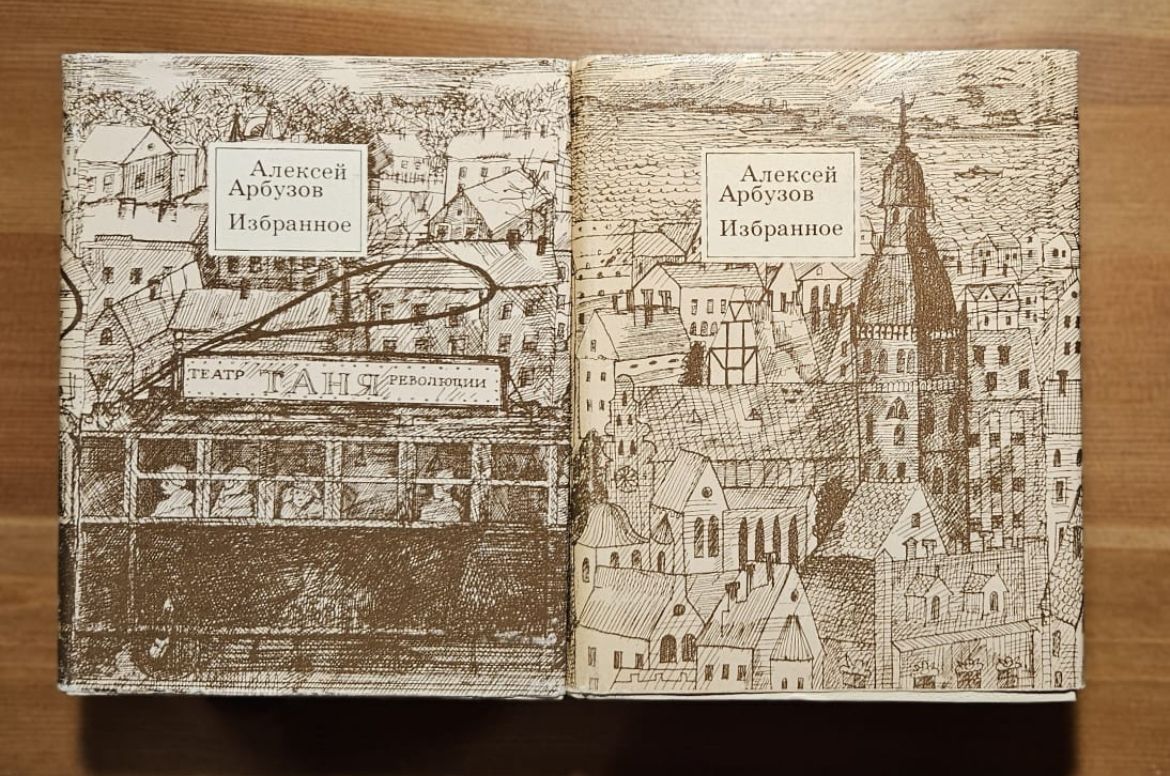 Алексей
Арбузов
Избранное
ТЕАТР ТАНЯ РЕВОЛЮЦИИ
Алексей
Арбузов
Избранное